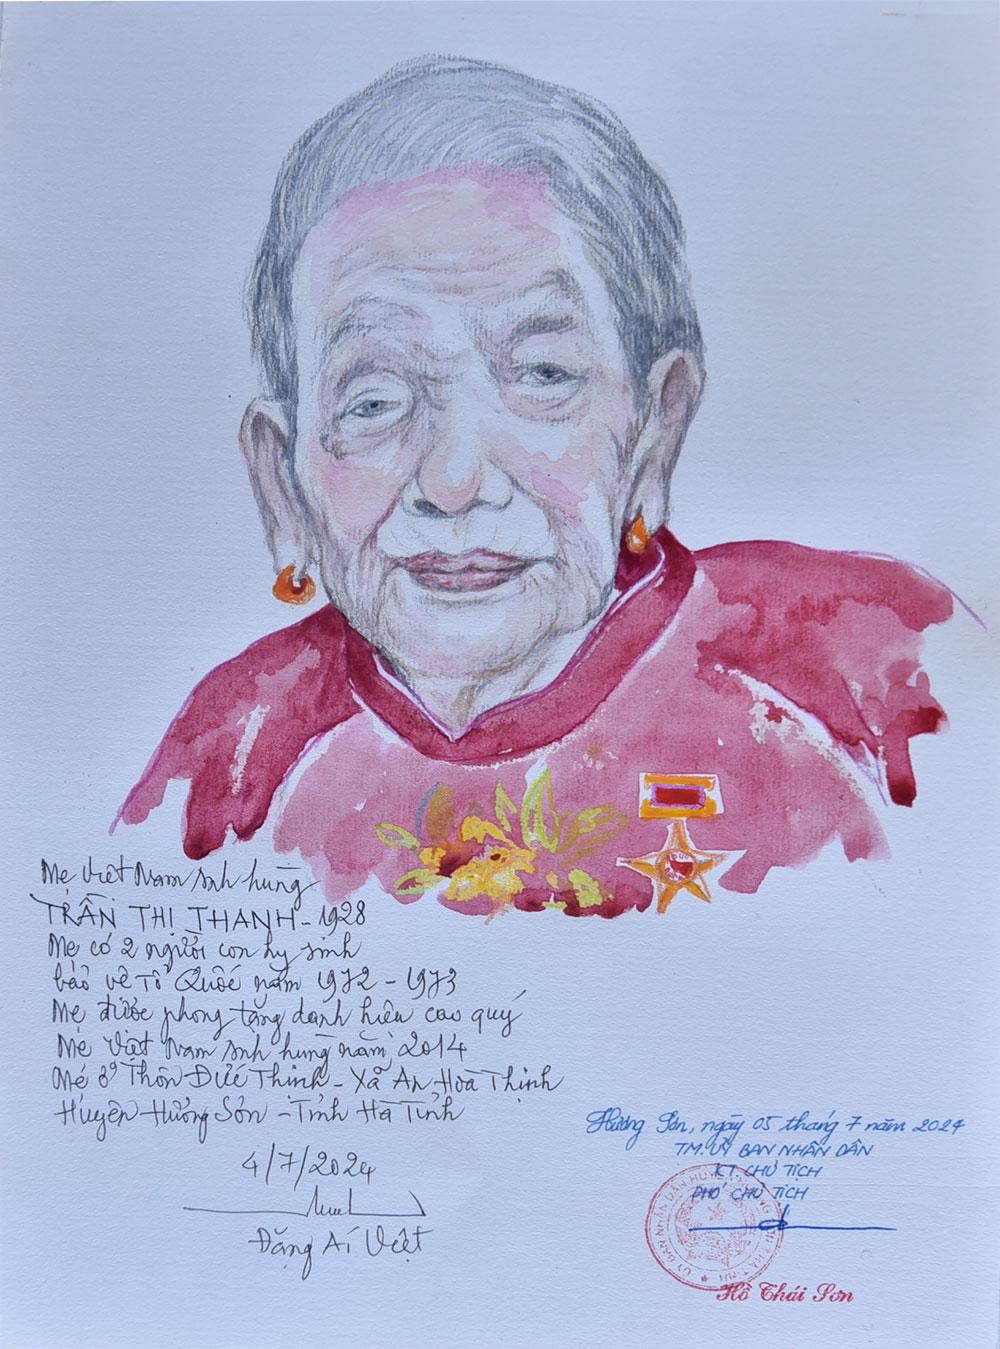 Mẹ Việt Nam anh hùng
TRẦN THỊ THANH - 1928
Mẹ có 2 người con hy sinh
bảo vệ Tổ Quốc năm 1972 - 1973
Mẹ được phong tặng danh hiệu cao quý
Mẹ Việt Nam anh hùng năm 2014
Mẹ ở Thôn Đức Thịnh - Xã An Hoà Thịnh
Huyện Hương Sơn - Tỉnh Hà Tĩnh
4/7/2024
Đặng Ái Việt
Hương Sơn, ngày 05 tháng 7 năm 2024
TM. UỶ BAN NHÂN DÂN
KT. CHỦ TỊCH
PHÓ CHỦ TỊCH
Hồ Thái Sơn